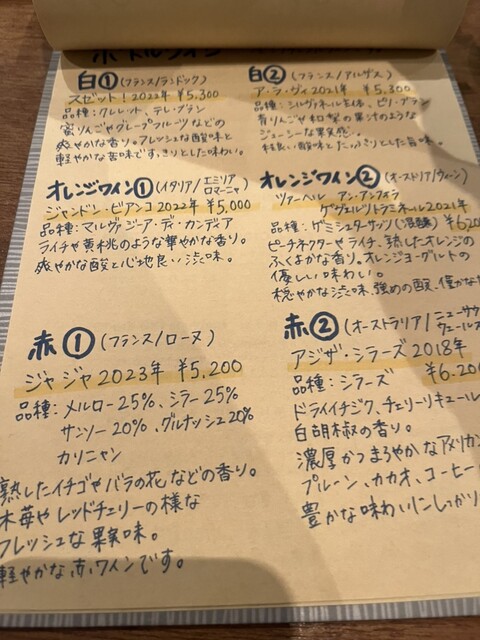 ボトルワイン
白① (フランス/ランドック)
スゼット!2022年 ¥5,300
品種:クレレット、テレ・ブラン
青りんごやグレープフルーツなどの
爽やかな香り。フレッシュな酸味と
軽やかな苦味です。きりとした味わい。
白② (フランス/アルザス)
ア・ラ・ヴィ2021年 ¥5,300
品種:シルヴァネル主体、ピノ・ブラン
青りんごや和梨の果汁のような
ジューシーな果実感。
程良い酸味とたっぷりとした旨味。
オレンジワイン① (イタリア/エミリア
ロマーニャ)
ジャンドン・ビアンコ2022年 ¥5,000
品種:マルヴァジーア・ディ・カンディア
ライチや黄桃のような華やかな香り。
爽やかな酸と心地良い渋味。
オレンジワイン② (オーストリア/ウィーン)
ツァーヘル アン・アンフォラ
ゲヴュルツトラミネール2021年
品種:ゲミシュターサッツ(混醸) ¥6,200
ピーチネクターやライチ、熟したオレンジの
ふくよかな香り。オレンジヨーグルトの
優しい味わい。
穏やかな渋味、強めの酸、僅かな
赤① (フランス/ローヌ)
ジャジャ2023年 ¥5,200
品種:メルロー25%、シラー25%
サンソー20%、グルナッシュ20%
カリニャン
熟したイチゴやバラの花などの香り。
木苺やレッドチェリーの様な
フレッシュな果実味。
軽やかな赤ワインです。
赤② (オーストラリア/ニューサウ
ウェールズ
アジザ・シラーズ2018年
品種:シラーズ ¥6,200
ドライイチジク、チェリーリキュール
白胡椒の香り。
濃厚かつまろやかなアメリカン
プルーン、カカオ、コーヒー
豊かな味わいにしっかり